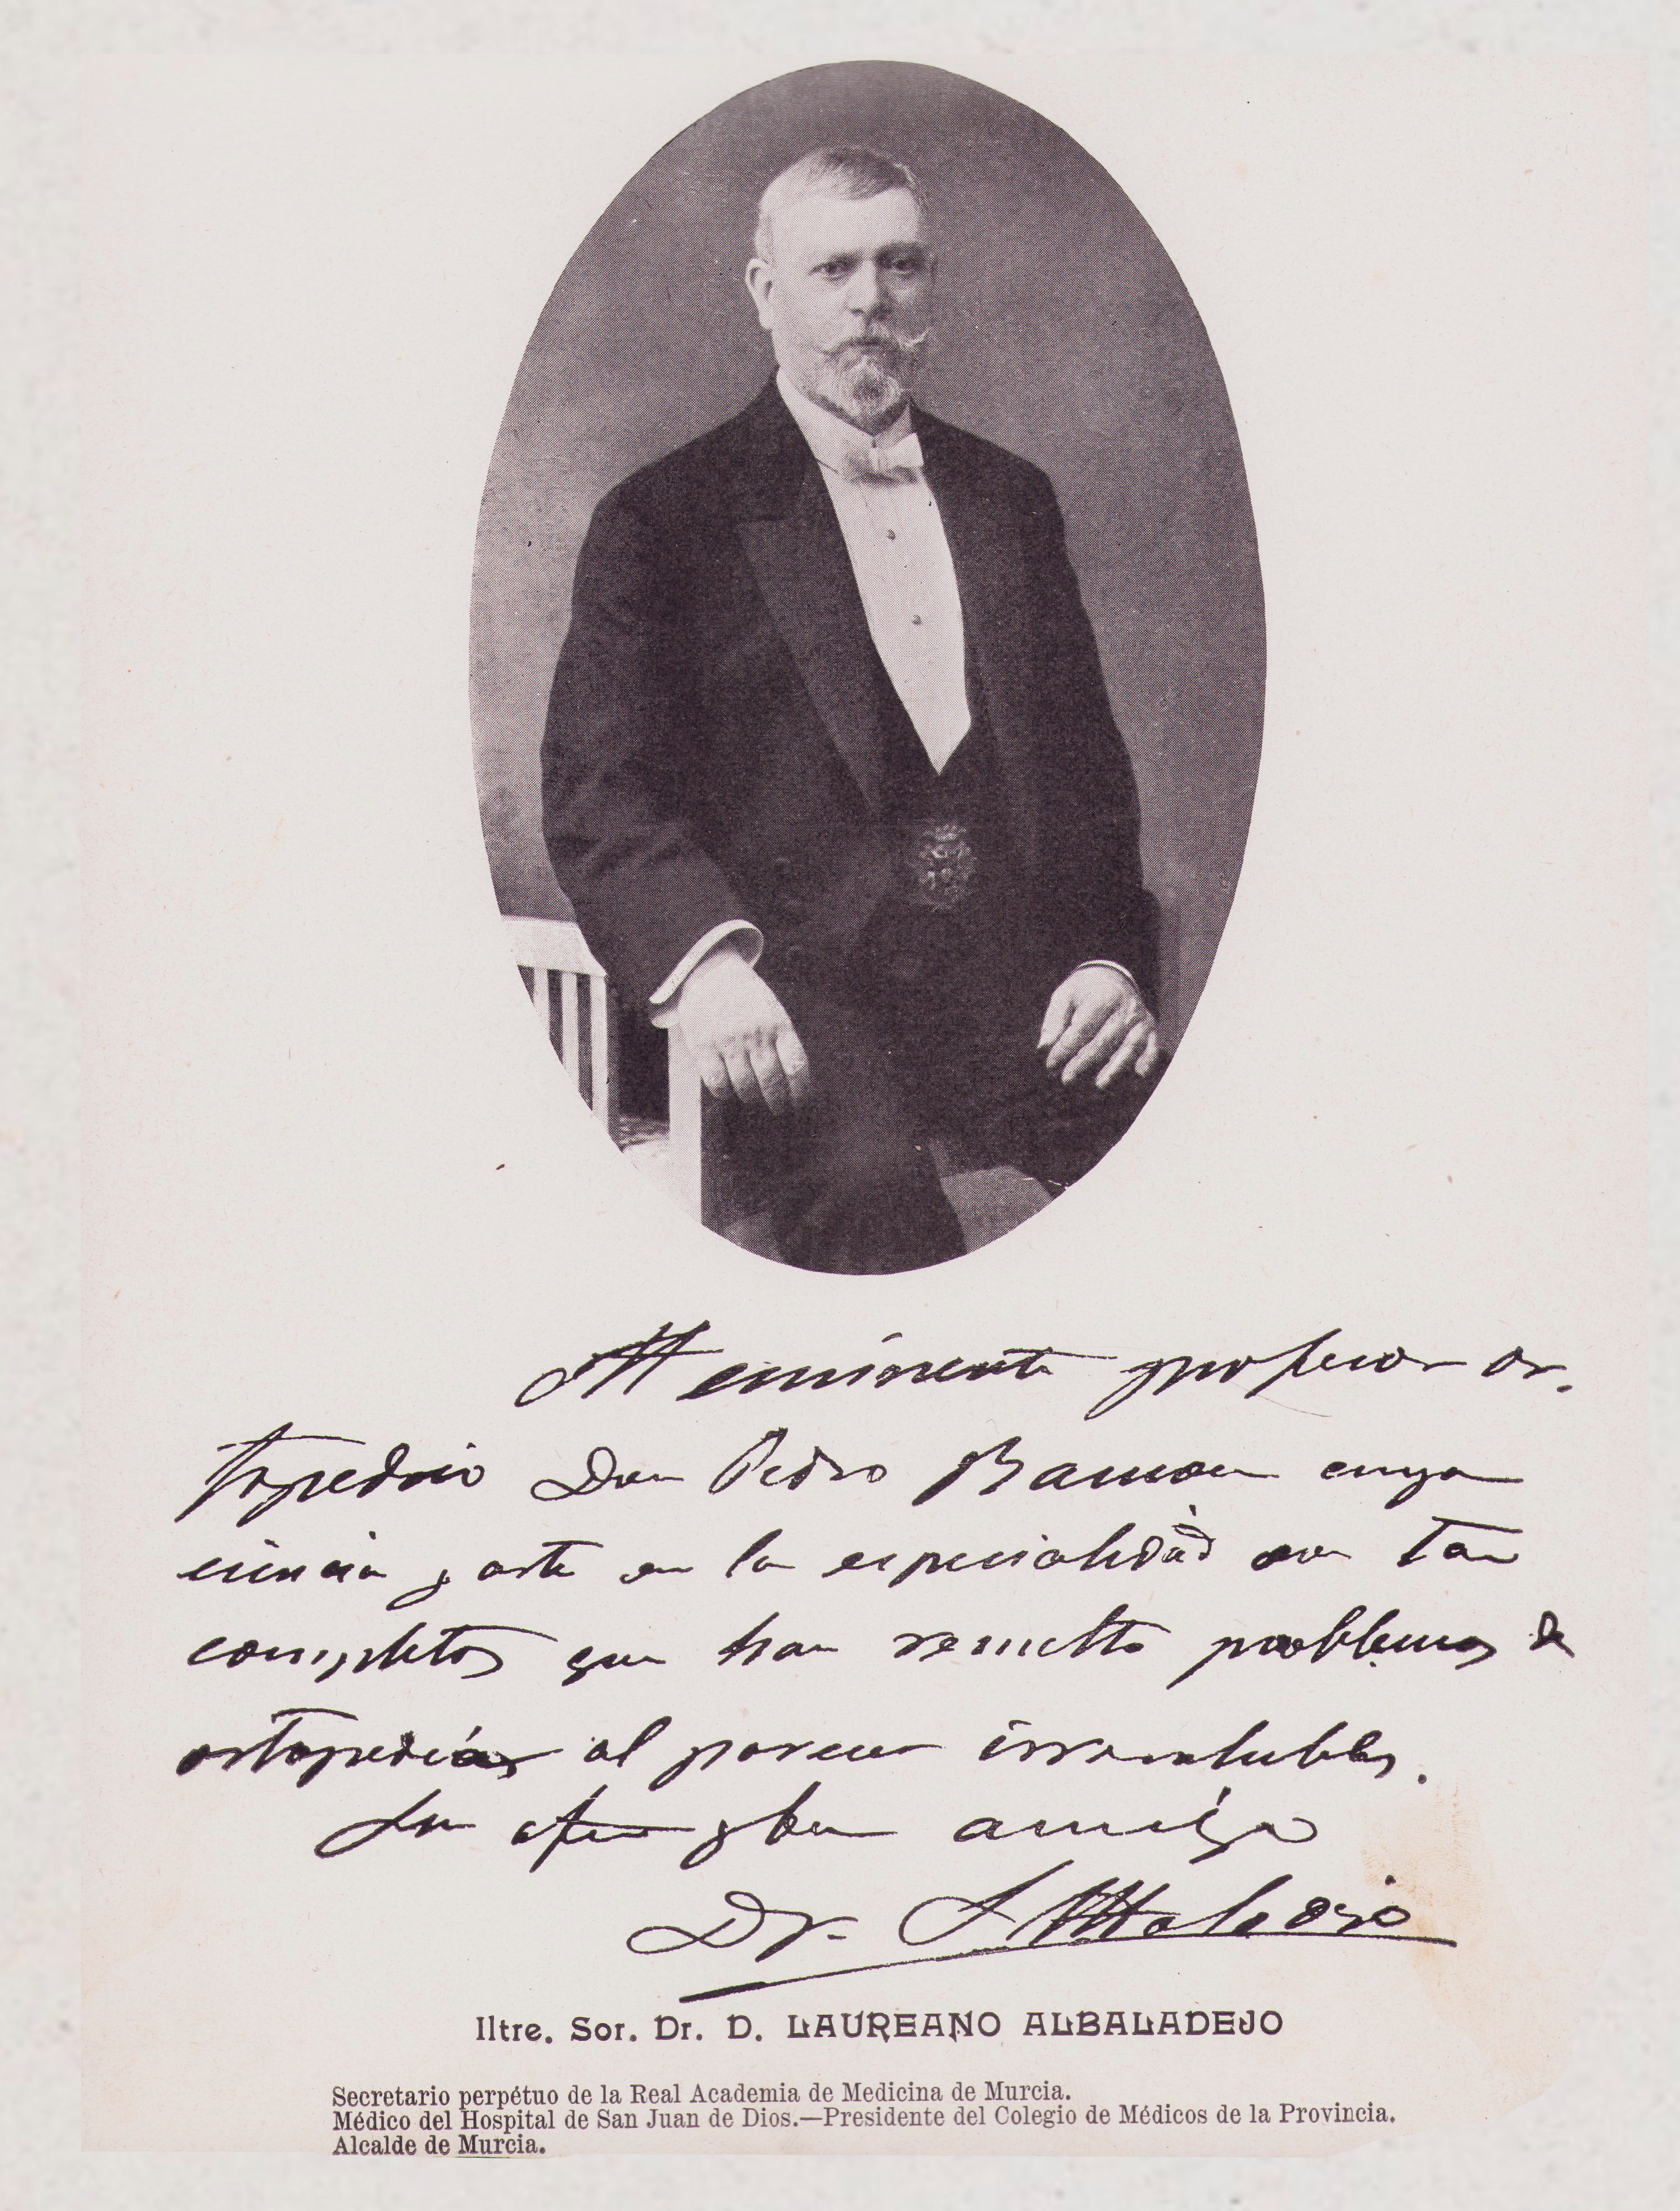 Al eminente profesor or-
topedico Don Pedro Ramon cuya
ciencia y arte en la especialidad son tan
completos que han resuelto problemas de
ortopedias al parecer irresolubles.
Su afmo y buen amigo
Dr. L Albaladejo
Iltre. Sor. Dr. D. LAUREANO ALBALADEJO
Secretario perpétuo de la Real Academia de Medicina de Murcia.
Médico del Hospital de San Juan de Dios.—Presidente del Colegio de Médicos de la Provincia.
Alcalde de Murcia.